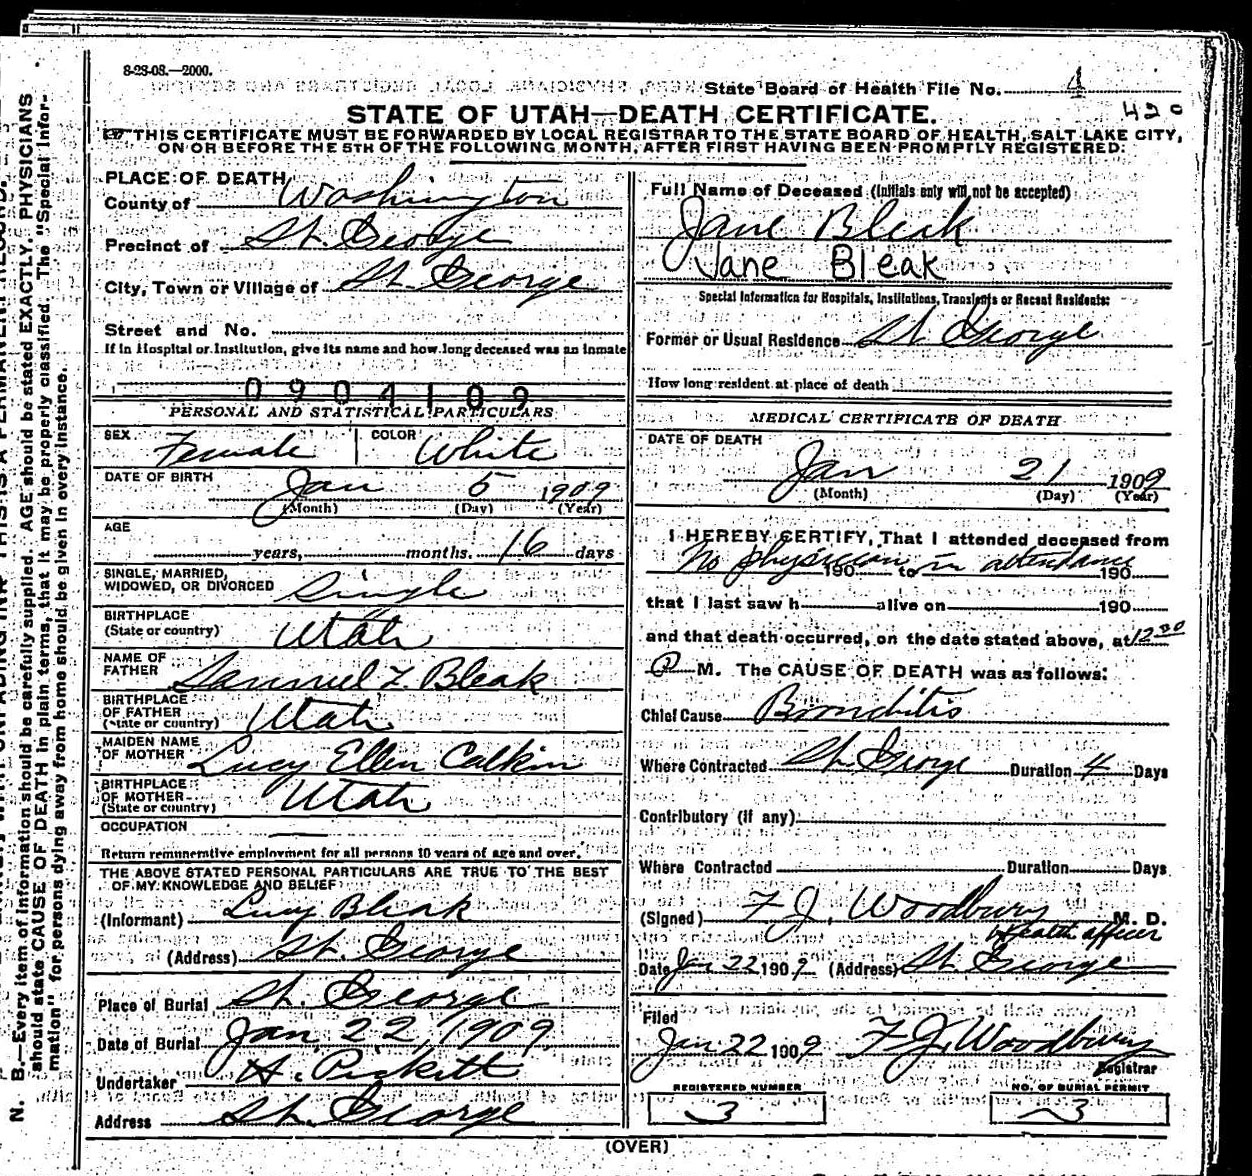 8-28-08.—2000.
State Board of Health File No. 4
420
STATE OF UTAH—DEATH CERTIFICATE.
THIS CERTIFICATE MUST BE FORWARDED BY LOCAL REGISTRAR TO THE STATE BOARD OF HEALTH, SALT LAKE CITY,
ON OR BEFORE THE 5TH OF THE FOLLOWING MONTH, AFTER FIRST HAVING BEEN PROMPTLY REGISTERED.
PLACE OF DEATH
County of Washington
Precinct of St. George
City, Town or Village of St. George
Street and No.
If in Hospital or Institution, give its name and how long deceased was an inmate
0904109
PERSONAL AND STATISTICAL PARTICULARS
SEX Female COLOR White
DATE OF BIRTH Jan 5 1909
(Month) (Day) (Year)
AGE
years, months. 16 days
SINGLE, MARRIED,
WIDOWED, OR DIVORCED Single
BIRTHPLACE
(State or country) Utah
NAME OF
FATHER Samuel Z. Bleak
BIRTHPLACE
OF FATHER
(State or country) Utah
MAIDEN NAME
OF MOTHER Lucy Ellen Calkin
BIRTHPLACE
OF MOTHER
(State or country) Utah
OCCUPATION
Return remunerative employment for all persons 10 years of age and over.
THE ABOVE STATED PERSONAL PARTICULARS ARE TRUE TO THE BEST
OF MY KNOWLEDGE AND BELIEF
(Informant) Lucy Bleak
(Address) St. George
Place of Burial St. George
Date of Burial Jan. 22, 1909
Undertaker A. Pickett
Address St. George
Full Name of Deceased (Initials only will not be accepted)
Jane Bleak
Jane Bleak
Special Information for Hospitals, Institutions, Transients or Recent Residents:
Former or Usual Residence St George
How long resident at place of death
MEDICAL CERTIFICATE OF DEATH
DATE OF DEATH
Jan 21 1909
(Month) (Day) (Year)
I HEREBY CERTIFY, That I attended deceased from
No physician in attendance
190 to 190
that I last saw h alive on 190
and that death occurred, on the date stated above, at 12 30
M. The CAUSE OF DEATH was as follows:
Chief Cause Bronchitis
Where Contracted St. George Duration 4 Days
Contributory (if any)
Where Contracted Duration Days
(Signed) F. J. Woodbury M. D.
Health officer
Date Jan 22 1909 (Address) St. George
Filed
Jan 22 1909 F. J. Woodbury
Registrar
REGISTERED NUMBER
3
NO. OF BURIAL PERMIT
3
(OVER)
N. B.—Every item of information should be carefully supplied. AGE should be stated EXACTLY. PHYSICIANS
should state CAUSE OF DEATH in plain terms, that it may be properly classified. The "Special Infor-
mation" for persons dying away from home should be given in every instance.